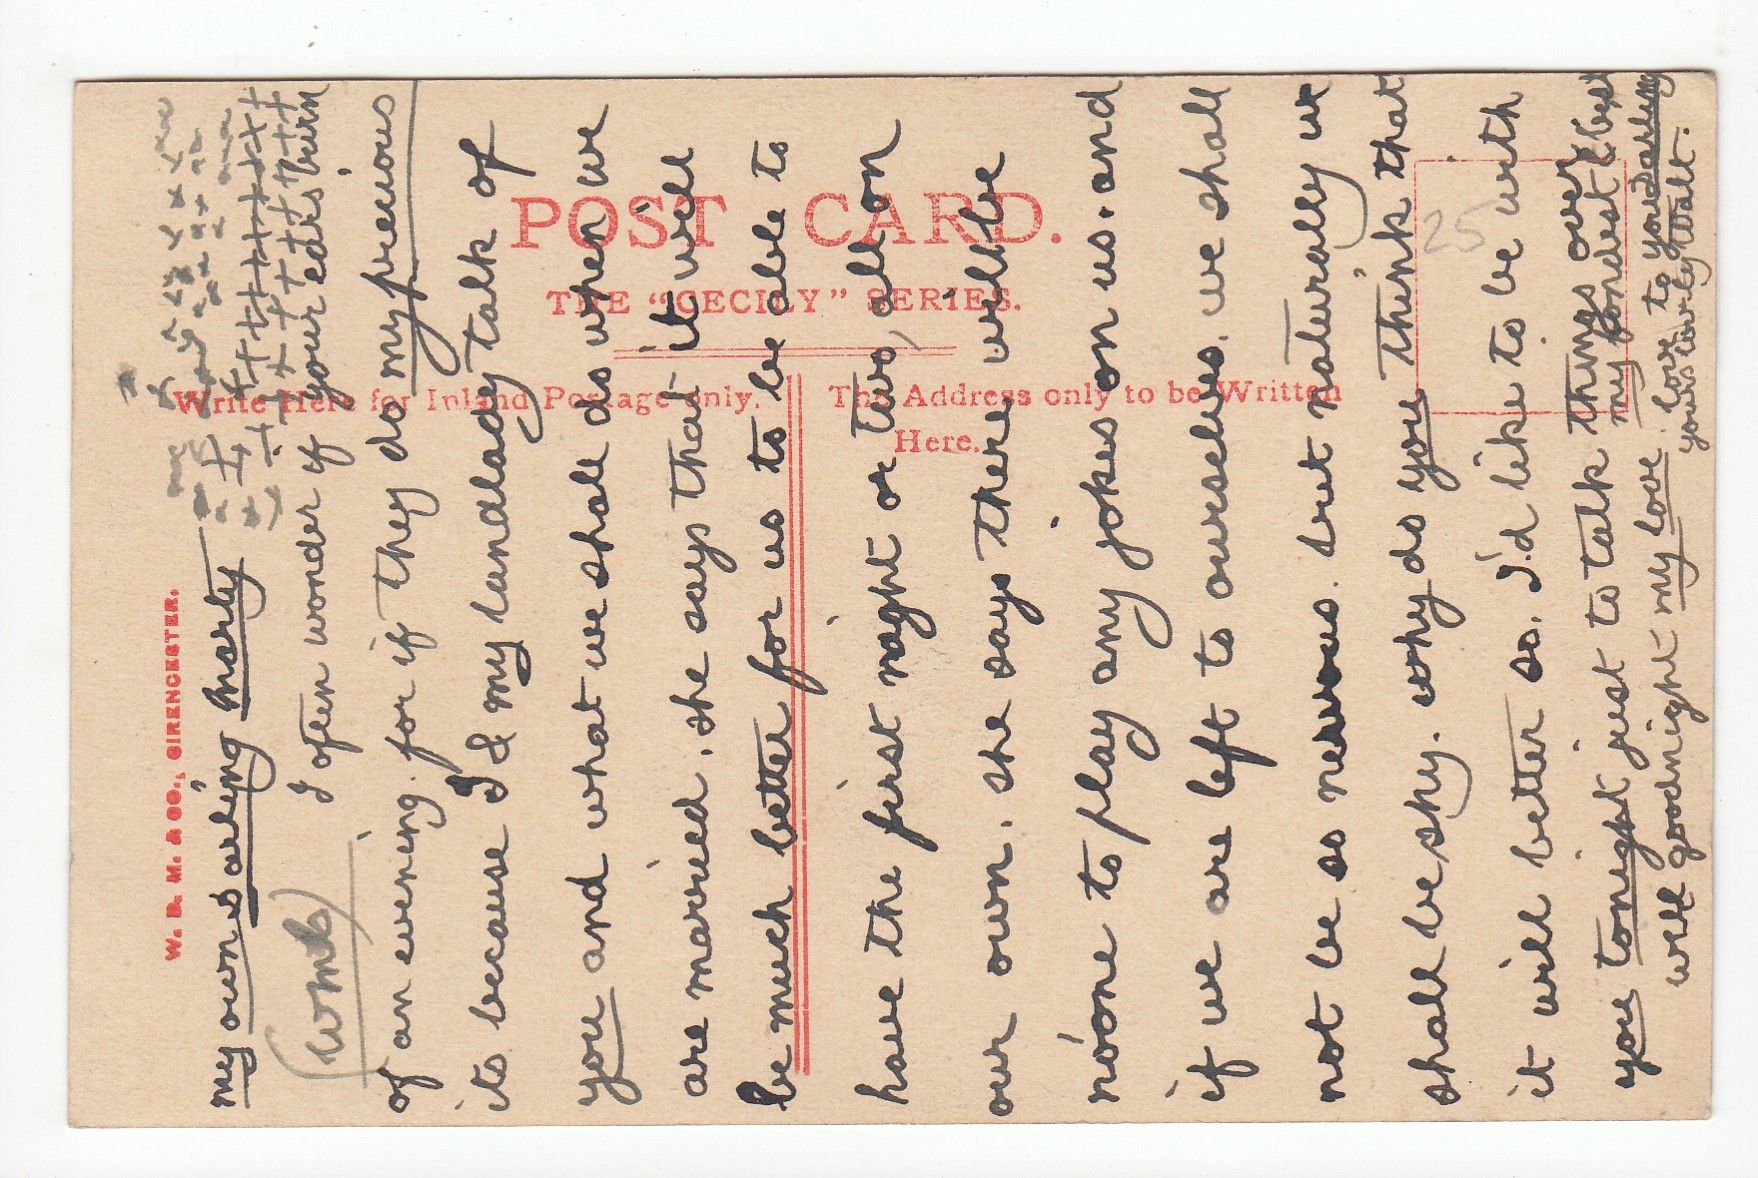 POST CARD.
THE "CECILY" SERIES.
Write Here for Inland Postage only.
The Address only to be Written
Here.
W. B. M. & CO., CIRENCESTER.
25
my own darling Marty
I often wonder if your ears burn
of an evening. for if they do my precious
its because I & my landlady talk of
you and what we shall do when we
are married. she says that it will
be much better for us to be able to
have the first night or two, all on
our own. she says there will be
noone to play any jokes on us. and
if we are left to ourselves. we shall
not be so nervous. but naturally we
shall be shy. why do you think that
it will better so. I'd like to be with
you tonight just to talk things over
well goodnight my love my fondest & best
love to you darling
yours lovely Walt.